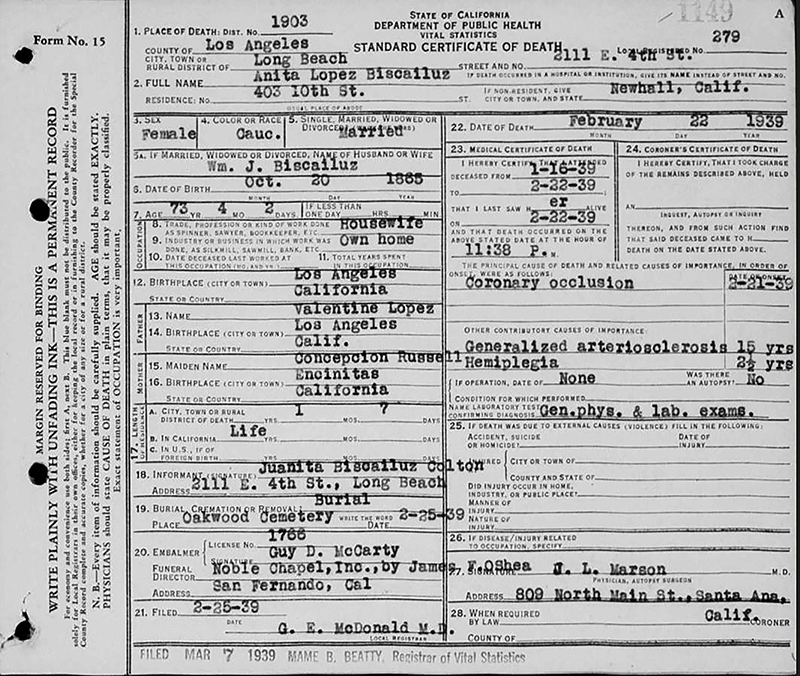 1149
A
Form No. 15
MARGIN RESERVED FOR BINDING
WRITE PLAINLY WITH UNFADING INK—THIS IS A PERMANENT RECORD
N. B.—Every item of information should be carefully supplied. AGE should be stated EXACTLY.
PHYSICIANS should state CAUSE OF DEATH in plain terms, that it may be properly classified.
Exact statement of OCCUPATION is very important.
STATE OF CALIFORNIA
DEPARTMENT OF PUBLIC HEALTH
VITAL STATISTICS
STANDARD CERTIFICATE OF DEATH
1. PLACE OF DEATH: DIST. No. 1903
COUNTY OF Los Angeles
LOCAL REGISTERED No. 279
CITY, TOWN OR
RURAL DISTRICT OF Long Beach STREET AND NO. 2111 E. 4th St.
IF DEATH OCCURRED IN A HOSPITAL OR INSTITUTION, GIVE ITS NAME INSTEAD OF STREET AND NO.
2. FULL NAME Anita Lopez Biscailuz
RESIDENCE: No. 403 10th St. ST. IF NON-RESIDENT, GIVE CITY OR TOWN, AND STATE Newhall, Calif.
USUAL PLACE OF ABODE
3. SEX Female
4. COLOR OR RACE Cauc.
5. SINGLE, MARRIED, WIDOWED OR DIVORCED Married
5A. IF MARRIED, WIDOWED OR DIVORCED, NAME OF HUSBAND OR WIFE
Wm. J. Biscailuz
6. DATE OF BIRTH Oct. 20 1865
MONTH DAY YEAR
7. AGE 73 YR 4 MO 2 DAYS IF LESS THAN ONE DAY HRS MIN.
OCCUPATION
8. TRADE, PROFESSION OR KIND OF WORK DONE
AS SPINNER, SAWYER, BOOKKEEPER, ETC. Housewife
9. INDUSTRY OR BUSINESS IN WHICH WORK WAS
DONE, AS SILKMILL, SAWMILL, BANK, ETC Own home
10. DATE DECEASED LAST WORKED AT
THIS OCCUPATION
11. TOTAL YEARS SPENT
IN THIS OCCUPATION
12. BIRTHPLACE (CITY OR TOWN) Los Angeles
STATE OR COUNTRY California
FATHER
13. NAME Valentine Lopez
14. BIRTHPLACE (CITY OR TOWN) Los Angeles
STATE OR COUNTRY Calif.
MOTHER
15. MAIDEN NAME Concepcion Russell
16. BIRTHPLACE (CITY OR TOWN) Encinitas
STATE OR COUNTRY California
17. LENGTH OF RESIDENCE
A. CITY, TOWN OR RURAL
DISTRICT OF DEATH 1 YRS. 7 MOS. DAYS
B. IN CALIFORNIA Life YRS. MOS. DAYS
C. IN U.S., IF OF
FOREIGN BIRTH YRS. MOS. DAYS
18. INFORMANT (SIGNATURE) Juanita Biscailuz Colton
ADDRESS 2111 E. 4th St., Long Beach
19. BURIAL, CREMATION OR REMOVAL? Burial
WRITE THE WORD
PLACE Oakwood Cemetery DATE 2-25-39
20. EMBALMER LICENSE No. 1766
SIGNATURE Guy D. McCarty
FUNERAL DIRECTOR Noble Chapel, Inc., by James F. OShea
ADDRESS San Fernando, Cal
21. FILED 2-25-39
DATE
G. E. McDonald M.D.
LOCAL REGISTRAR
22. DATE OF DEATH February 22 1939
MONTH DAY YEAR
23. MEDICAL CERTIFICATE OF DEATH
I HEREBY CERTIFY, THAT I ATTENDED
DECEASED FROM 1-16-39
TO 2-22-39
THAT I LAST SAW H er ALIVE
ON 2-22-39
AND THAT DEATH OCCURRED ON THE
ABOVE STATED DATE AT THE HOUR OF
11:38 P. M.
24. CORONER'S CERTIFICATE OF DEATH
I HEREBY CERTIFY, THAT I TOOK CHARGE
OF THE REMAINS DESCRIBED ABOVE, HELD
AN
INQUEST, AUTOPSY OR INQUIRY
THEREON, AND FROM SUCH ACTION FIND
THAT SAID DECEASED CAME TO H
DEATH ON THE DATE STATED ABOVE.
THE PRINCIPAL CAUSE OF DEATH AND RELATED CAUSES OF IMPORTANCE, IN ORDER OF
ONSET, WERE AS FOLLOWS: DATE OF ONSET
Coronary occlusion 2-21-39
OTHER CONTRIBUTORY CAUSES OF IMPORTANCE:
Generalized arteriosclerosis 15 yrs
Hemiplegia 2½ yrs
IF OPERATION, DATE OF None WAS THERE AN AUTOPSY? No
CONDITION FOR WHICH PERFORMED
NAME LABORATORY TEST
CONFIRMING DIAGNOSIS Gen.phys. & lab. exams.
25. IF DEATH WAS DUE TO EXTERNAL CAUSES (VIOLENCE) FILL IN THE FOLLOWING:
ACCIDENT, SUICIDE
OR HOMICIDE? DATE OF INJURY
INJURED CITY OR TOWN OF
COUNTY AND STATE OF
DID INJURY OCCUR IN HOME,
INDUSTRY, OR PUBLIC PLACE?
MANNER OF
INJURY
NATURE OF
INJURY
26. IF DISEASE/INJURY RELATED
TO OCCUPATION, SPECIFY
27. SIGNATURE J. L. Marson M.D.
PHYSICIAN, AUTOPSY SURGEON
ADDRESS 809 North Main St., Santa Ana,
Calif.
28. WHEN REQUIRED
BY LAW CORONER
COUNTY OF
FILED MAR 7 1939 MAME B. BEATTY, Registrar of Vital Statistics